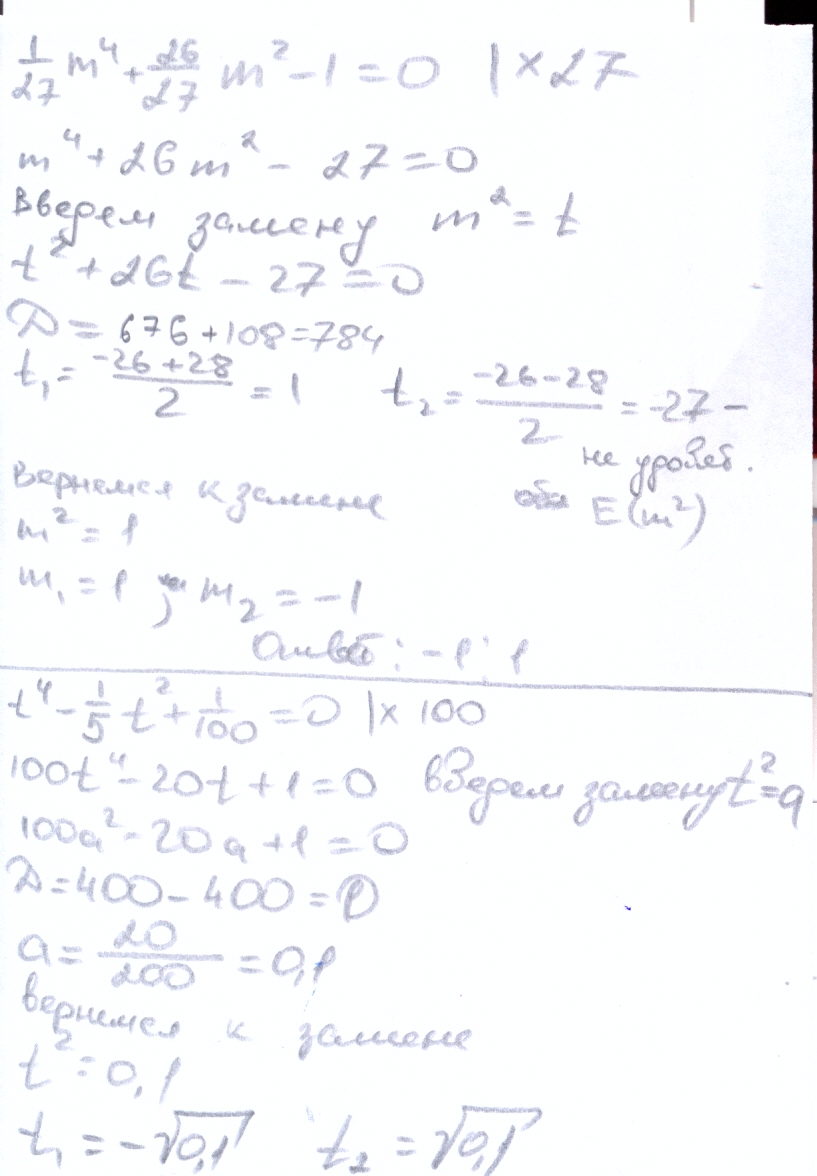 1/27 m⁴ + 26/27 m² - 1 = 0 | × 27
m⁴ + 26m² - 27 = 0
Введем замену m² = t
t² + 26t - 27 = 0
D = 676 + 108 = 784
t₁ = (-26 + 28)/2 = 1 t₂ = (-26 - 28)/2 = -27 -
не удовлет.
E(m²)
Вернемся к замене
m² = 1
m₁ = 1 ; m₂ = -1
Ответ: -1; 1
t⁴ - 1/5 t² + 1/100 = 0 | × 100
100t⁴ - 20t + 1 = 0 введем замену t² = a
100a² - 20a + 1 = 0
D = 400 - 400 = 0
a = 20/200 = 0,1
вернемся к замене
t² = 0,1
t₁ = -√0,1 t₂ = √0,1